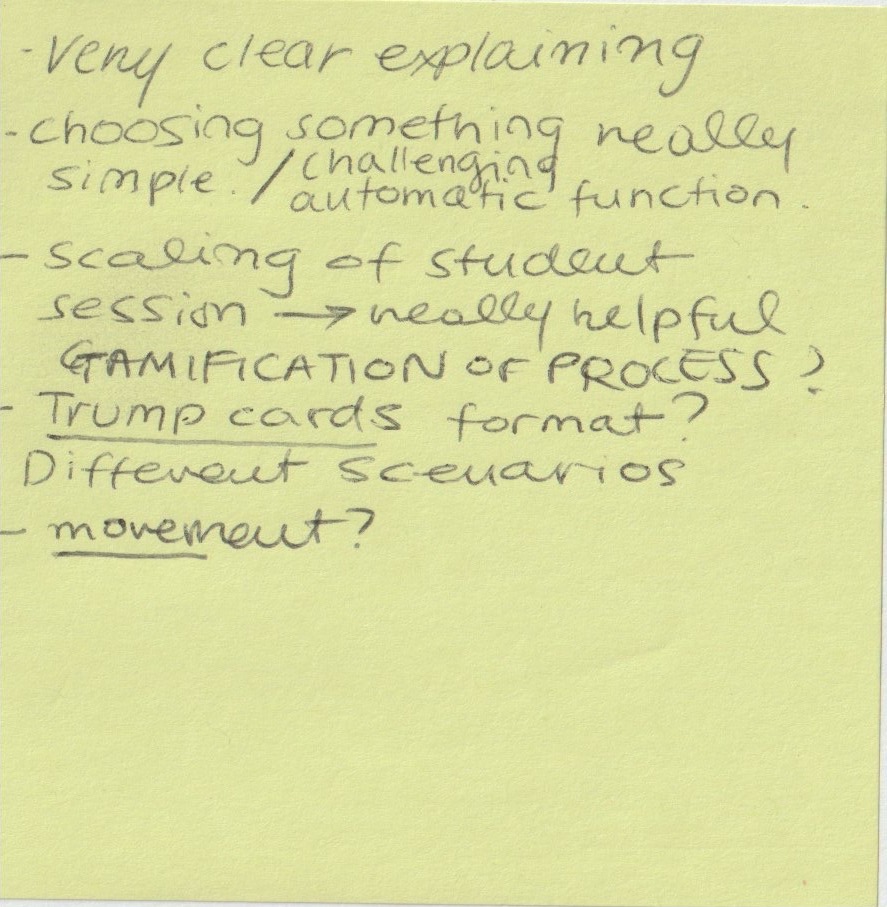 - Very clear explaining
- choosing something really
simple. / challenging
automatic function.
- scaling of student
session → really helpful
GAMIFICATION OF PROCESS?
- Trump cards format?
Different scenarios
- movement?